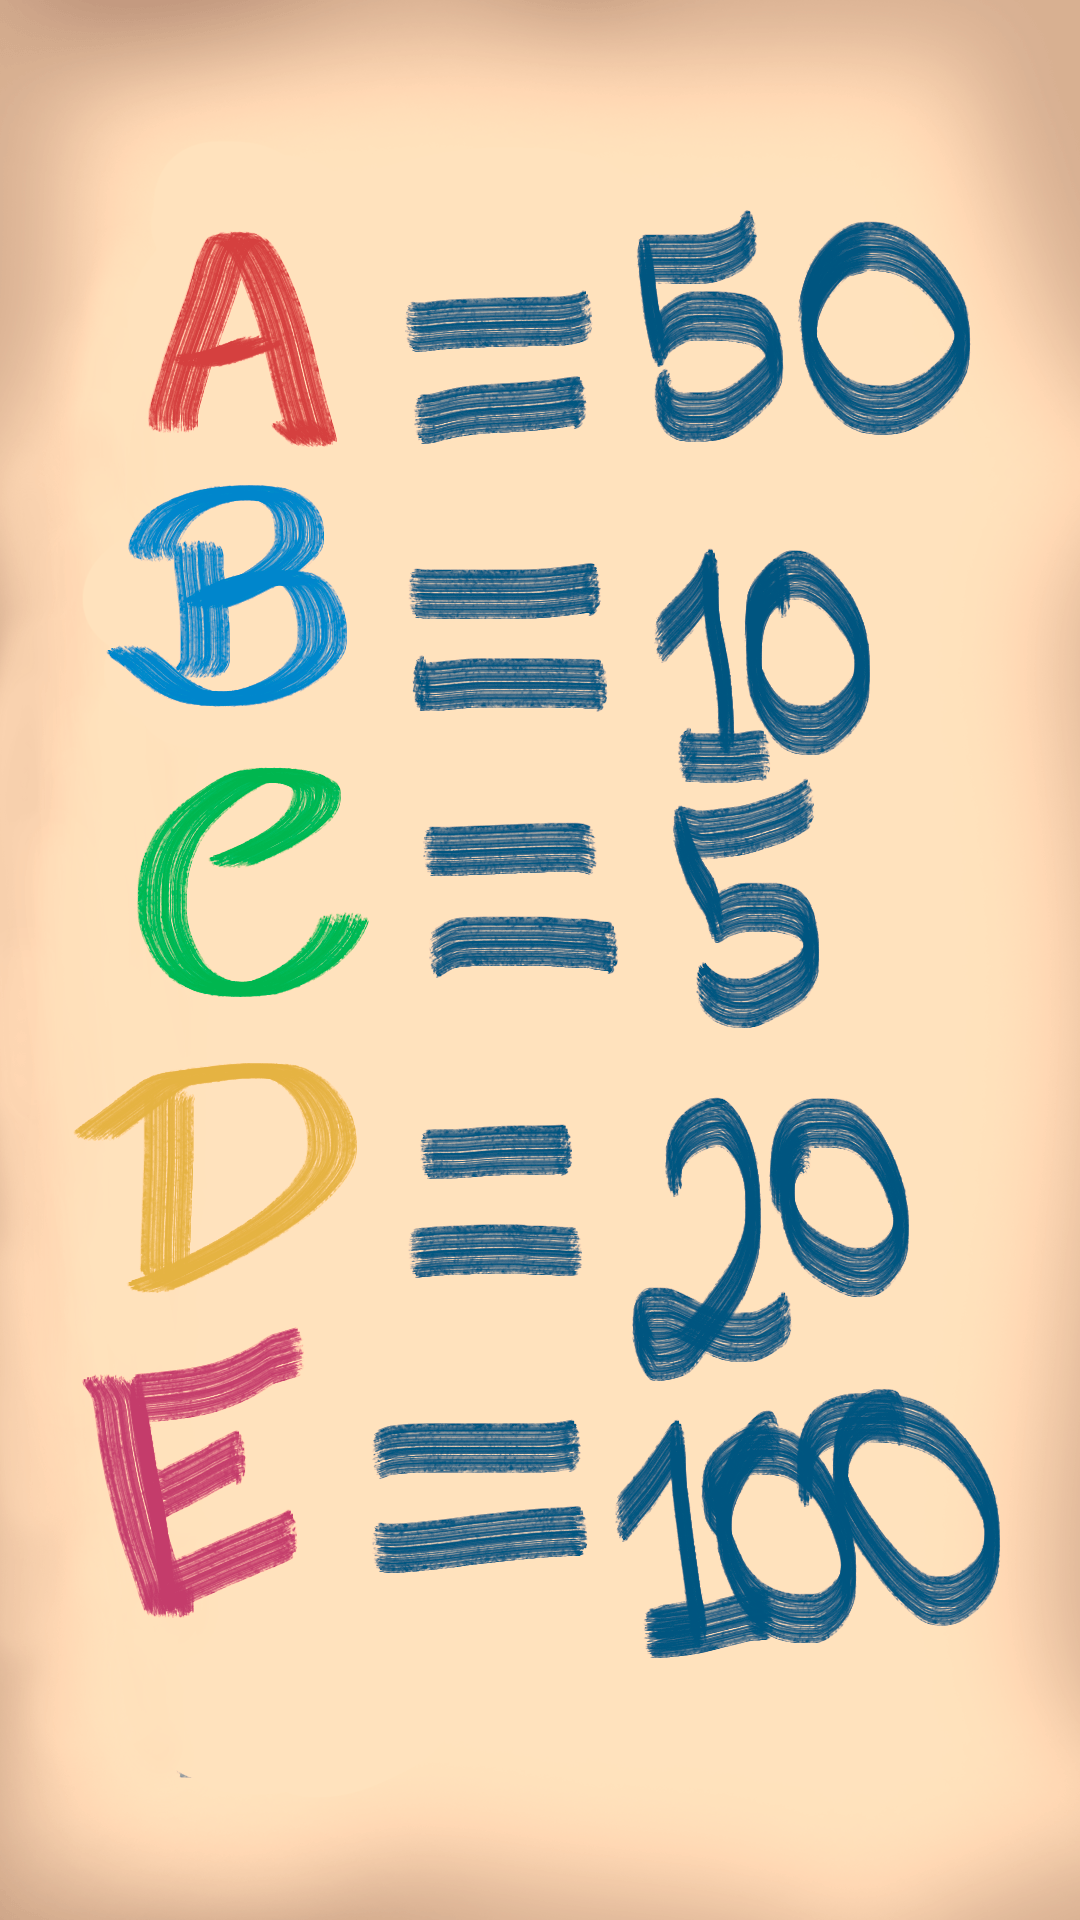 A = 50
B = 10
C = 5
D = 20
E = 100